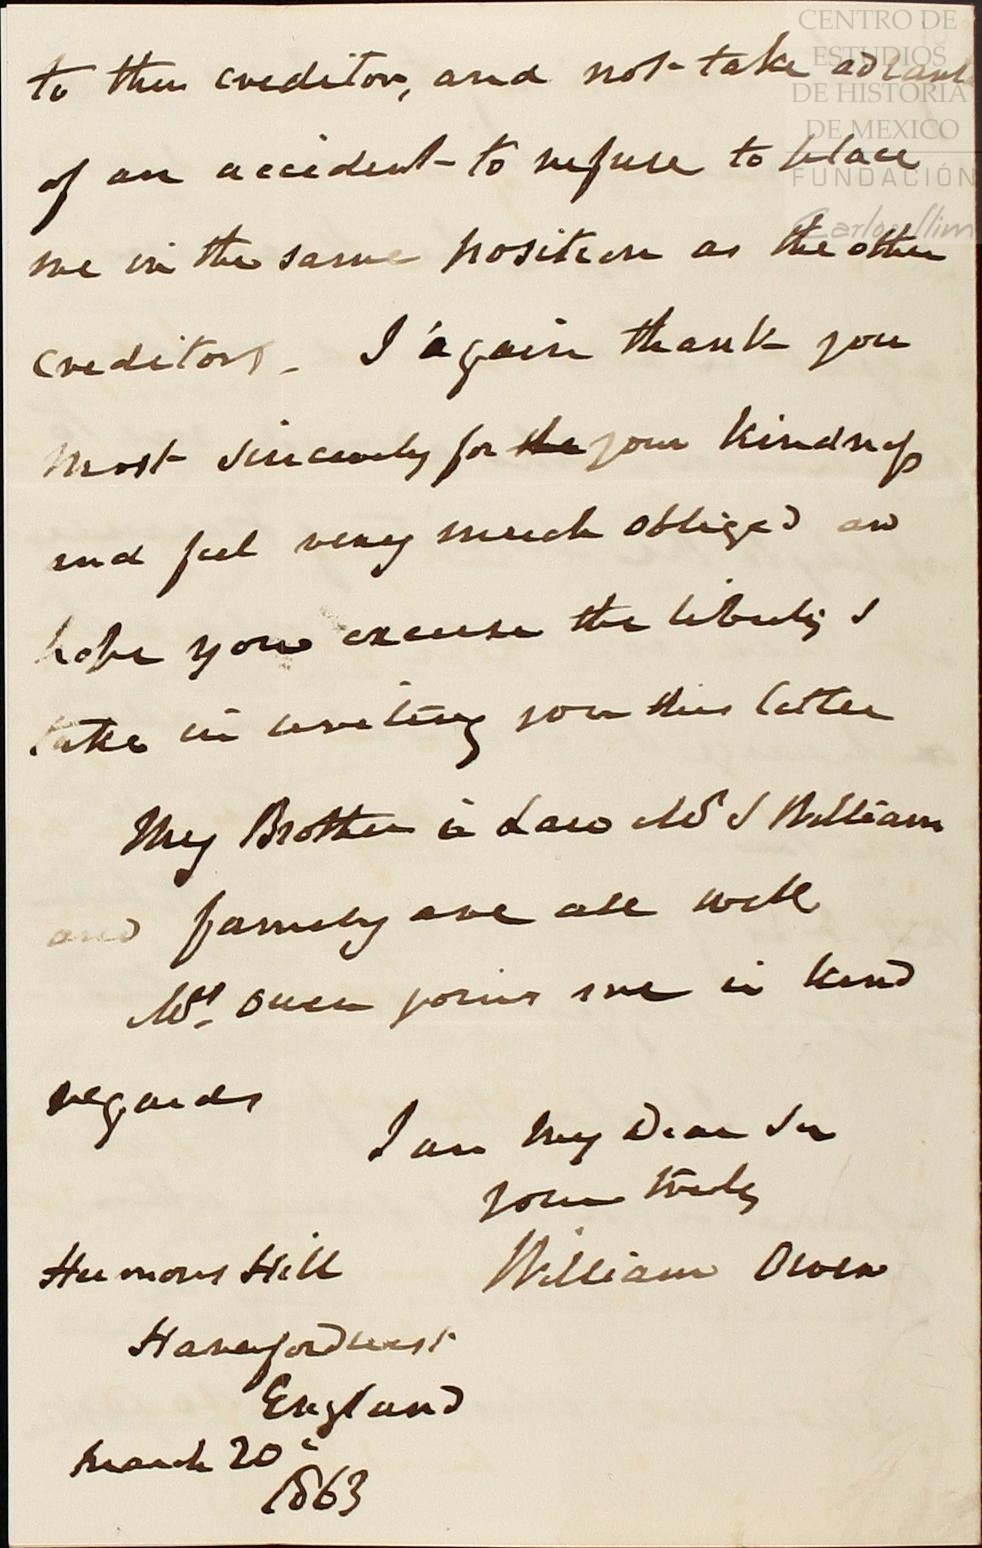 CENTRO DE
ESTUDIOS
DE HISTORIA
DE MEXICO
FUNDACIÓN
Carlos Slim
to their creditors, and not take advant
of an accident to refuse to place
me in the same position as the other
creditors. I again thank you
most sincerely for the your kindness
and feel very much obliged and
hope you excuse the liberty I
take in writing you this letter
My Brother in Law Mr J William
and family are all well
Mrs. Owen joins me in kind
regards
I am My Dear Sir
yours truly
William Owen
Hermons Hill
Haverfordwest
England
March 20
1863